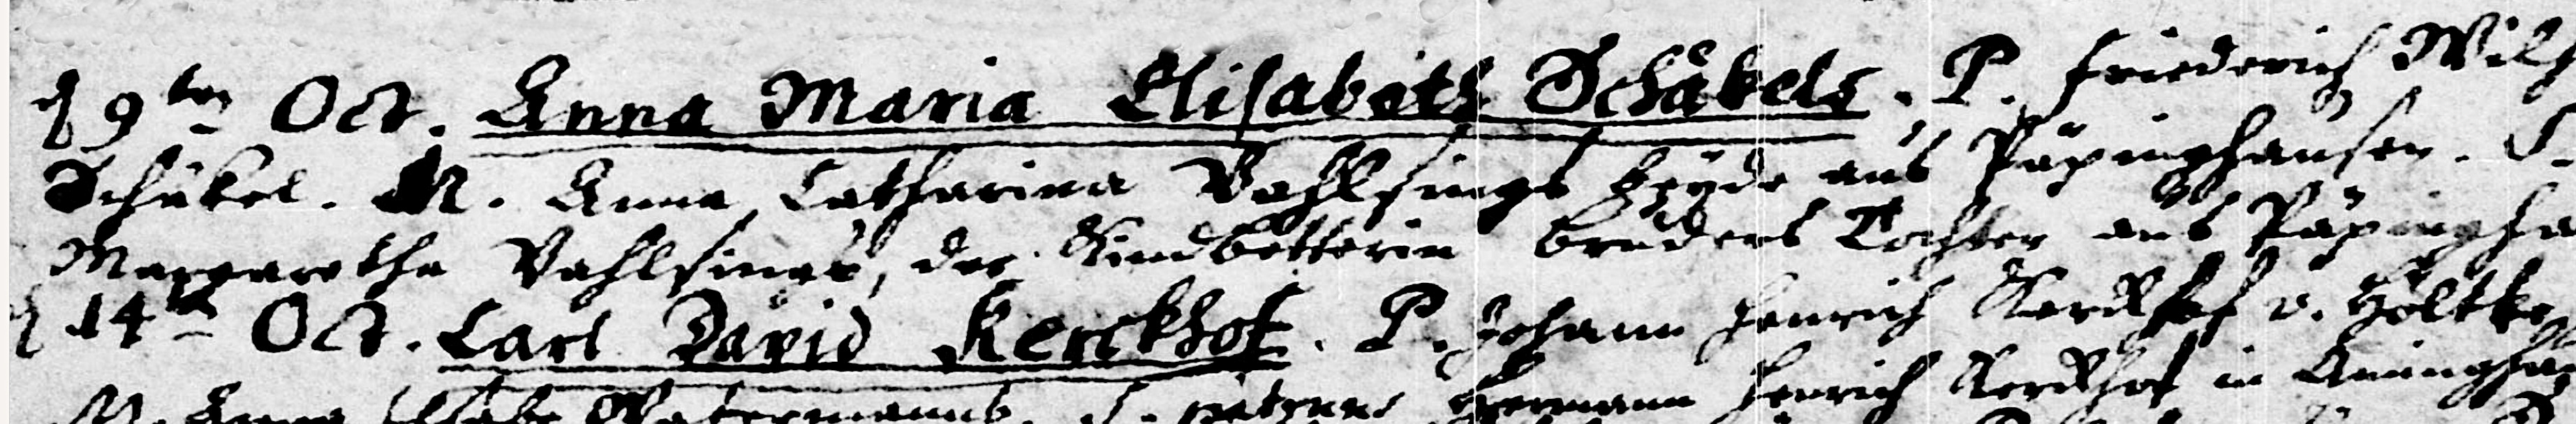 d 9ten Oct. Anna Maria Elisabeth Schäkels. P. Friederich Wilh
Schäkel. M. Anna Catharina Vahlsings beyde aus Päpinghausen. S.
Margaretha Vahlsings, der Kindbetterin bruders Tochter aus Päpingha
d 14ten Oct. Carl David Kerckhof. P. Johann Henrich Kerckhof v. Holtka
M. Anna Hermann Henrich Kerckhof in